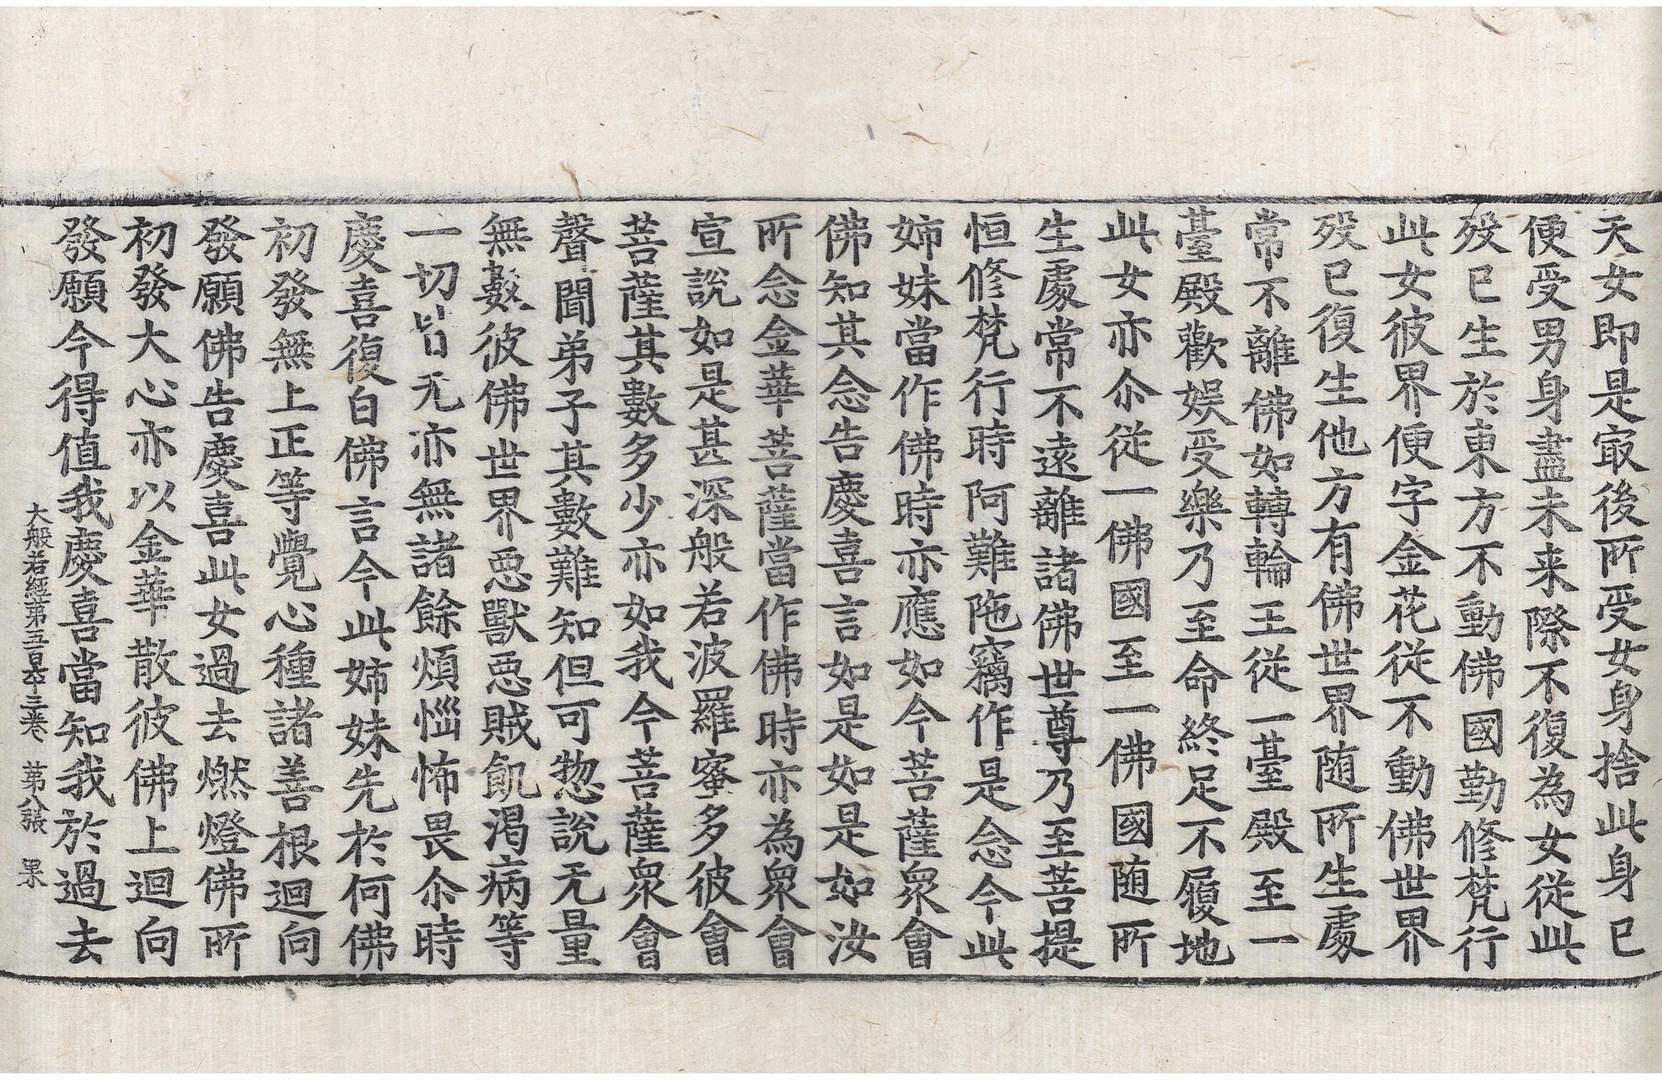 天女即是㝡後所受女身捨此身已
便受男身盡未来際不復為女從此
歿已生於東方不動佛國勤修梵行
此女彼界便字金花從不動佛世界
歿已復生他方有佛世界随所生處
常不離佛如轉輪王從一臺殿至一
臺殿歡娱受樂乃至命終足不履地
此女亦尒從一佛國至一佛國随所
生處常不遠離諸佛世尊乃至菩提
恒修梵行時阿難陁竊作是念今此
姉妹當作佛時亦應如今菩薩衆會
佛知其念告慶喜言如是如是如汝
所念金華菩薩當作佛時亦為衆會
宣說如是甚深般若波羅蜜多彼會
菩薩其數多少亦如我今菩薩衆會
聲聞弟子其數難知但可惣說无量
無數彼佛世界惡獸惡賊飢渴病等
一切皆无亦無諸餘煩惱怖畏尒時
慶喜復白佛言今此姉妹先於何佛
初發無上正等覺心種諸善根迴向
發願佛告慶喜此女過去燃燈佛所
初發大心亦以金華散彼佛上迴向
發願今得值我慶喜當知我於過去
大般若經第五百卒三卷 第八張 果